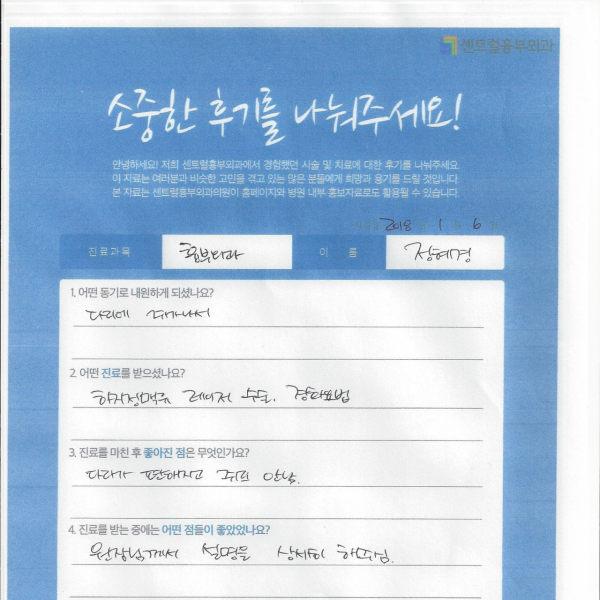 센트럴흉부외과
소중한 후기를 나눠주세요!
안녕하세요! 저희 센트럴흉부외과에서 경험했던 시술 및 치료에 대한 후기를 나눠주세요.
이 자료는 여러분과 비슷한 고민을 겪고 있는 많은 분들에게 희망과 용기를 드릴 것입니다.
본 자료는 센트럴흉부외과의원이 홈페이지와 병원 내부 홍보자료로도 활용될 수 있습니다.
2018 1 6
진료과목 흉부외과 이 름 정혜경
1. 어떤 동기로 내원하게 되셨나요?
다리에 쥐가나서
2. 어떤 진료를 받으셨나요?
하지정맥류 레이저 수술. 경화요법
3. 진료를 마친 후 좋아진 점은 무엇인가요?
다리가 편해지고 쥐르 안남.
4. 진료를 받는 중에는 어떤 점들이 좋았었나요?
원장님께서 설명을 상세히 해주심.